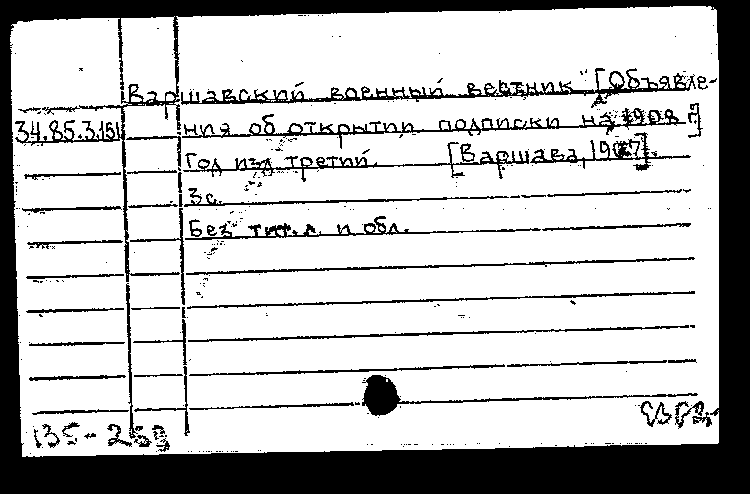 Варшавский военный вестник" [Объявле-
34.85.3.151 ния об открытии подписки на 1908 г.]
Год изд. третий. [Варшава, 1907].
3 с.
Без тит. л. и обл.
135-253